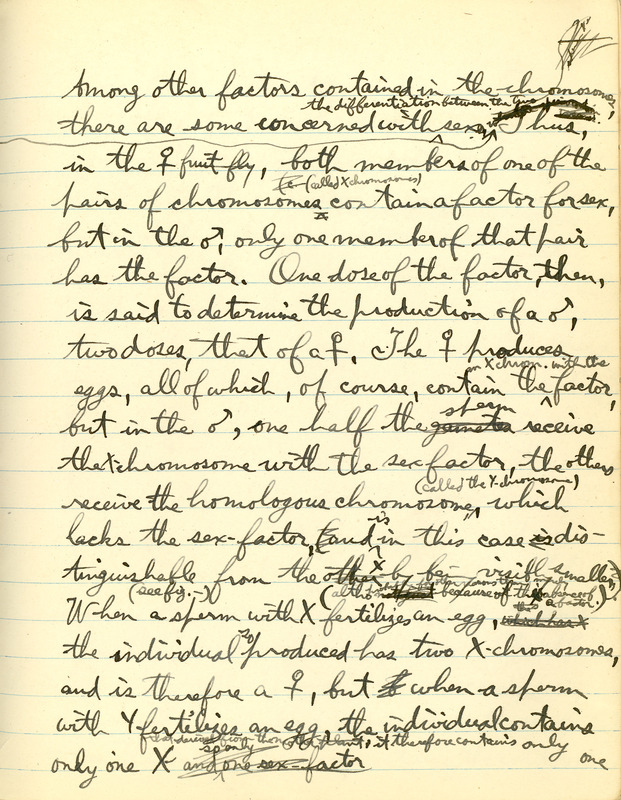 Among other factors contained in the chromosomes,
the differentiation between the two
there are some concerned with sex. Thus,
in the ♀ fruit fly, both members of one of the
(called X chromosomes)
pairs of chromosomes contain a factor for sex,
but in the ♂, only one member of that pair
has the factor. One dose of the factor, then,
is said to determine the production of a ♂,
two doses, that of a ♀. The ♀ produces
an X chrom. with the
eggs, all of which, of course, contain the factor,
sperm
but in the ♂, one half the gametes receive
the X-chromosome with the sex factor, the others
(called the Y-chromosome)
receive the homologous chromosome, which
is
lacks the sex-factor, and in this case is dis-
X
tinguishable from the other by being visibly smaller
(see fig. -) (altho because of the absence of
a factor.)
When a sperm with X fertilizes an egg, which has X
so
the individual produced has two X-chromosomes,
and is therefore a ♀, but when a sperm
with Y fertilizes an egg, the individual contains
it therefore contains only one
only one X and one sex-factor